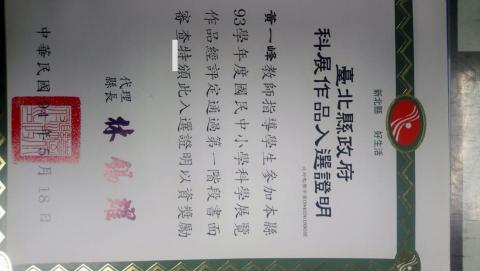 新北縣 好生活
臺北縣政府
科展作品入選證明
黃一峰教師指導學生參加本縣
93學年度國民中小學科學展覽
作品經評定通過第一階段書面
審查特頒此入選證明以資獎勵
代理
縣長
林錫耀
中華民國94年5月18日